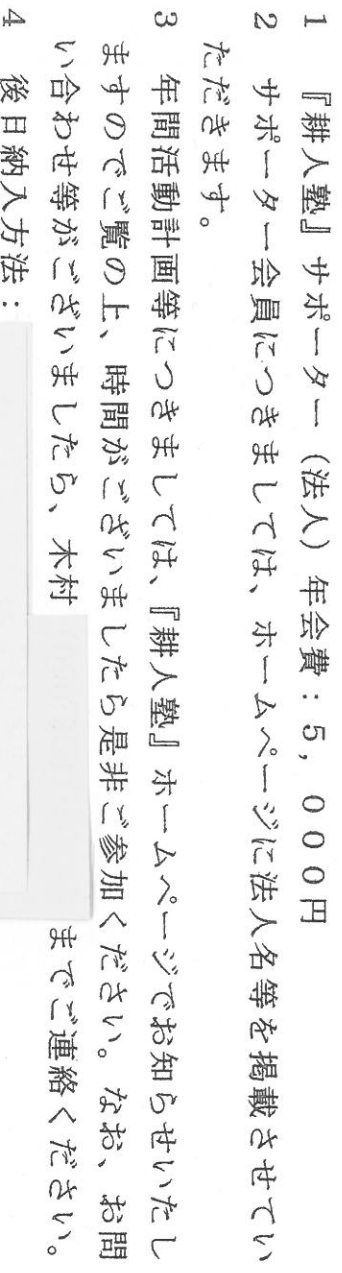 1　『耕人塾』サポーター（法人）年会費：５，０００円
2　サポーター会員につきましては、ホームページに法人名等を掲載させてい
ただきます。
3　年間活動計画等につきましては、『耕人塾』ホームページでお知らせいたし
ますのでご覧の上、時間がございましたら是非ご参加ください。なお、お問
い合わせ等がございましたら、木村　　　　までご連絡ください。
4　後日納入方法：